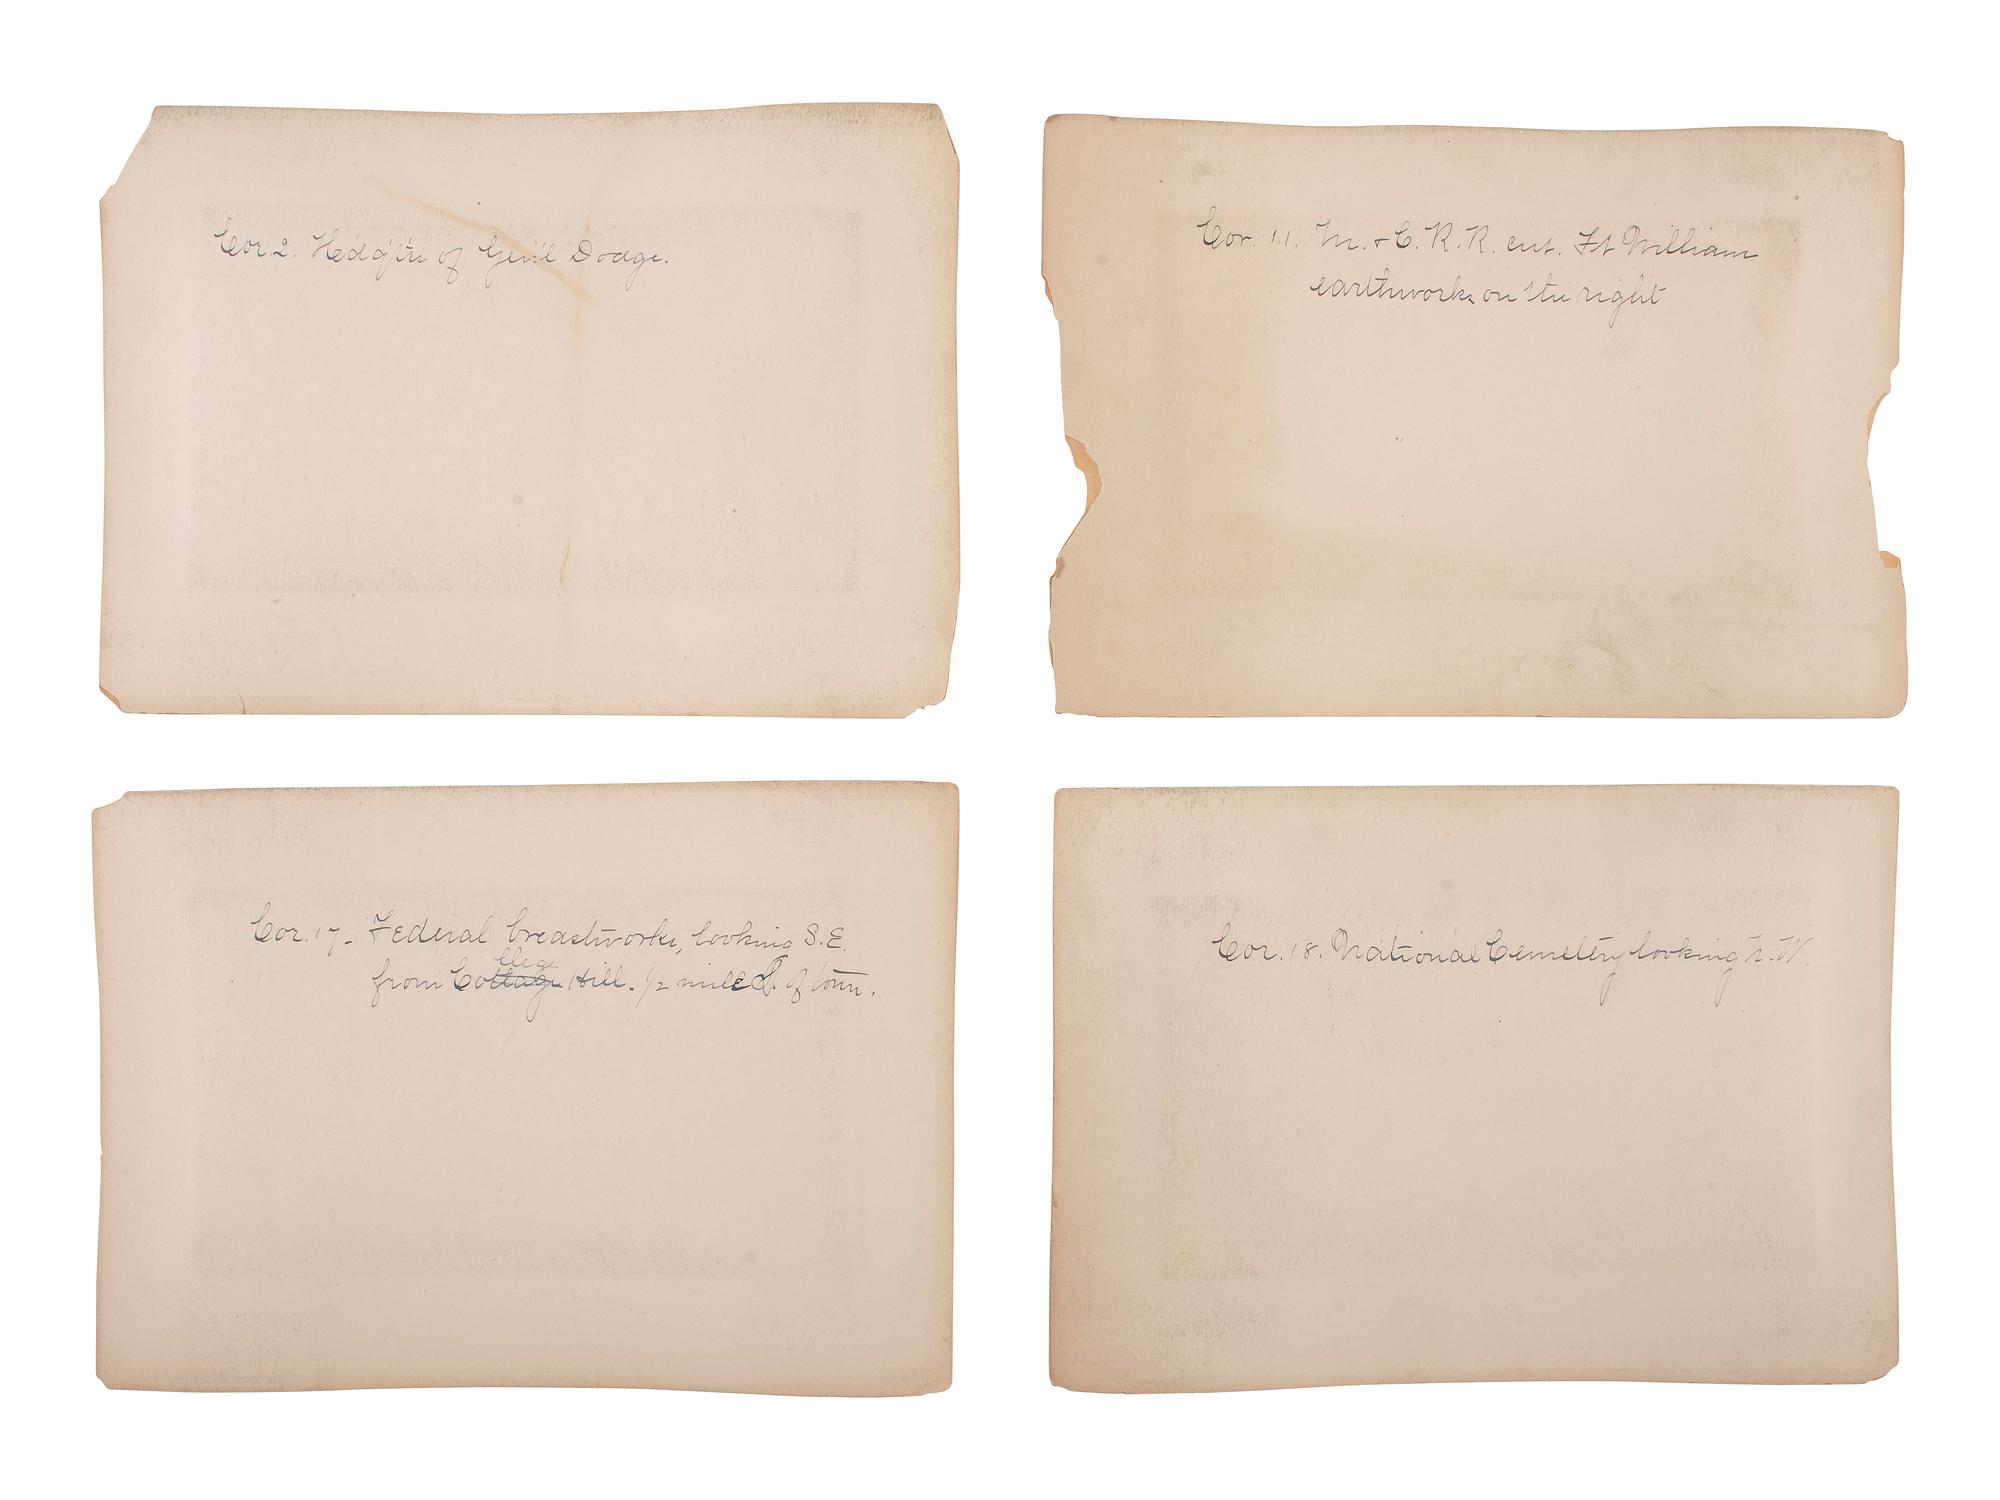 Cor. 2. Hdq'trs of Gen'l Dodge.
Cor. 11. M. + C. R. R. cut. Ft William
earthworks on the right
Cor. 17 - Federal breastworks, looking S.E.
llege
from Cottage Hill. 1/2 mile S. of town.
Cor. 18. National Cemetery looking N. W.